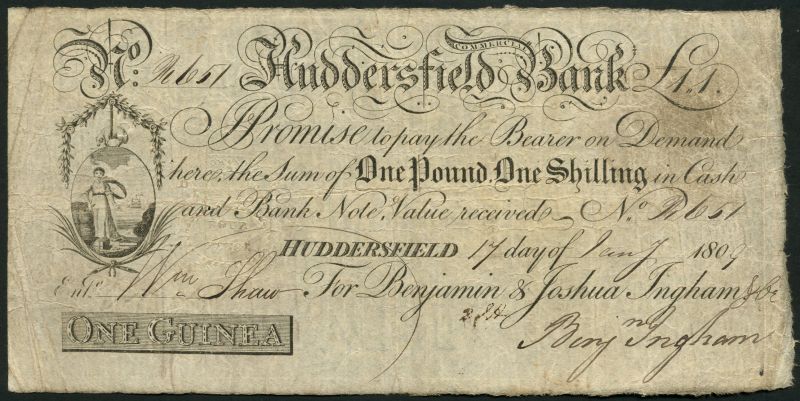 No: R651 Huddersfield COMMERCIAL Bank £1.1.
Promise to pay the Bearer on Demand
here, the Sum of One Pound, One Shilling in Cash
and Bank Note, Value received No R651
HUDDERSFIELD 17 day of Jany 1809
Entd Wm Shaw For Benjamin & Joshua Ingham & Co
ONE GUINEA Benjn Ingham